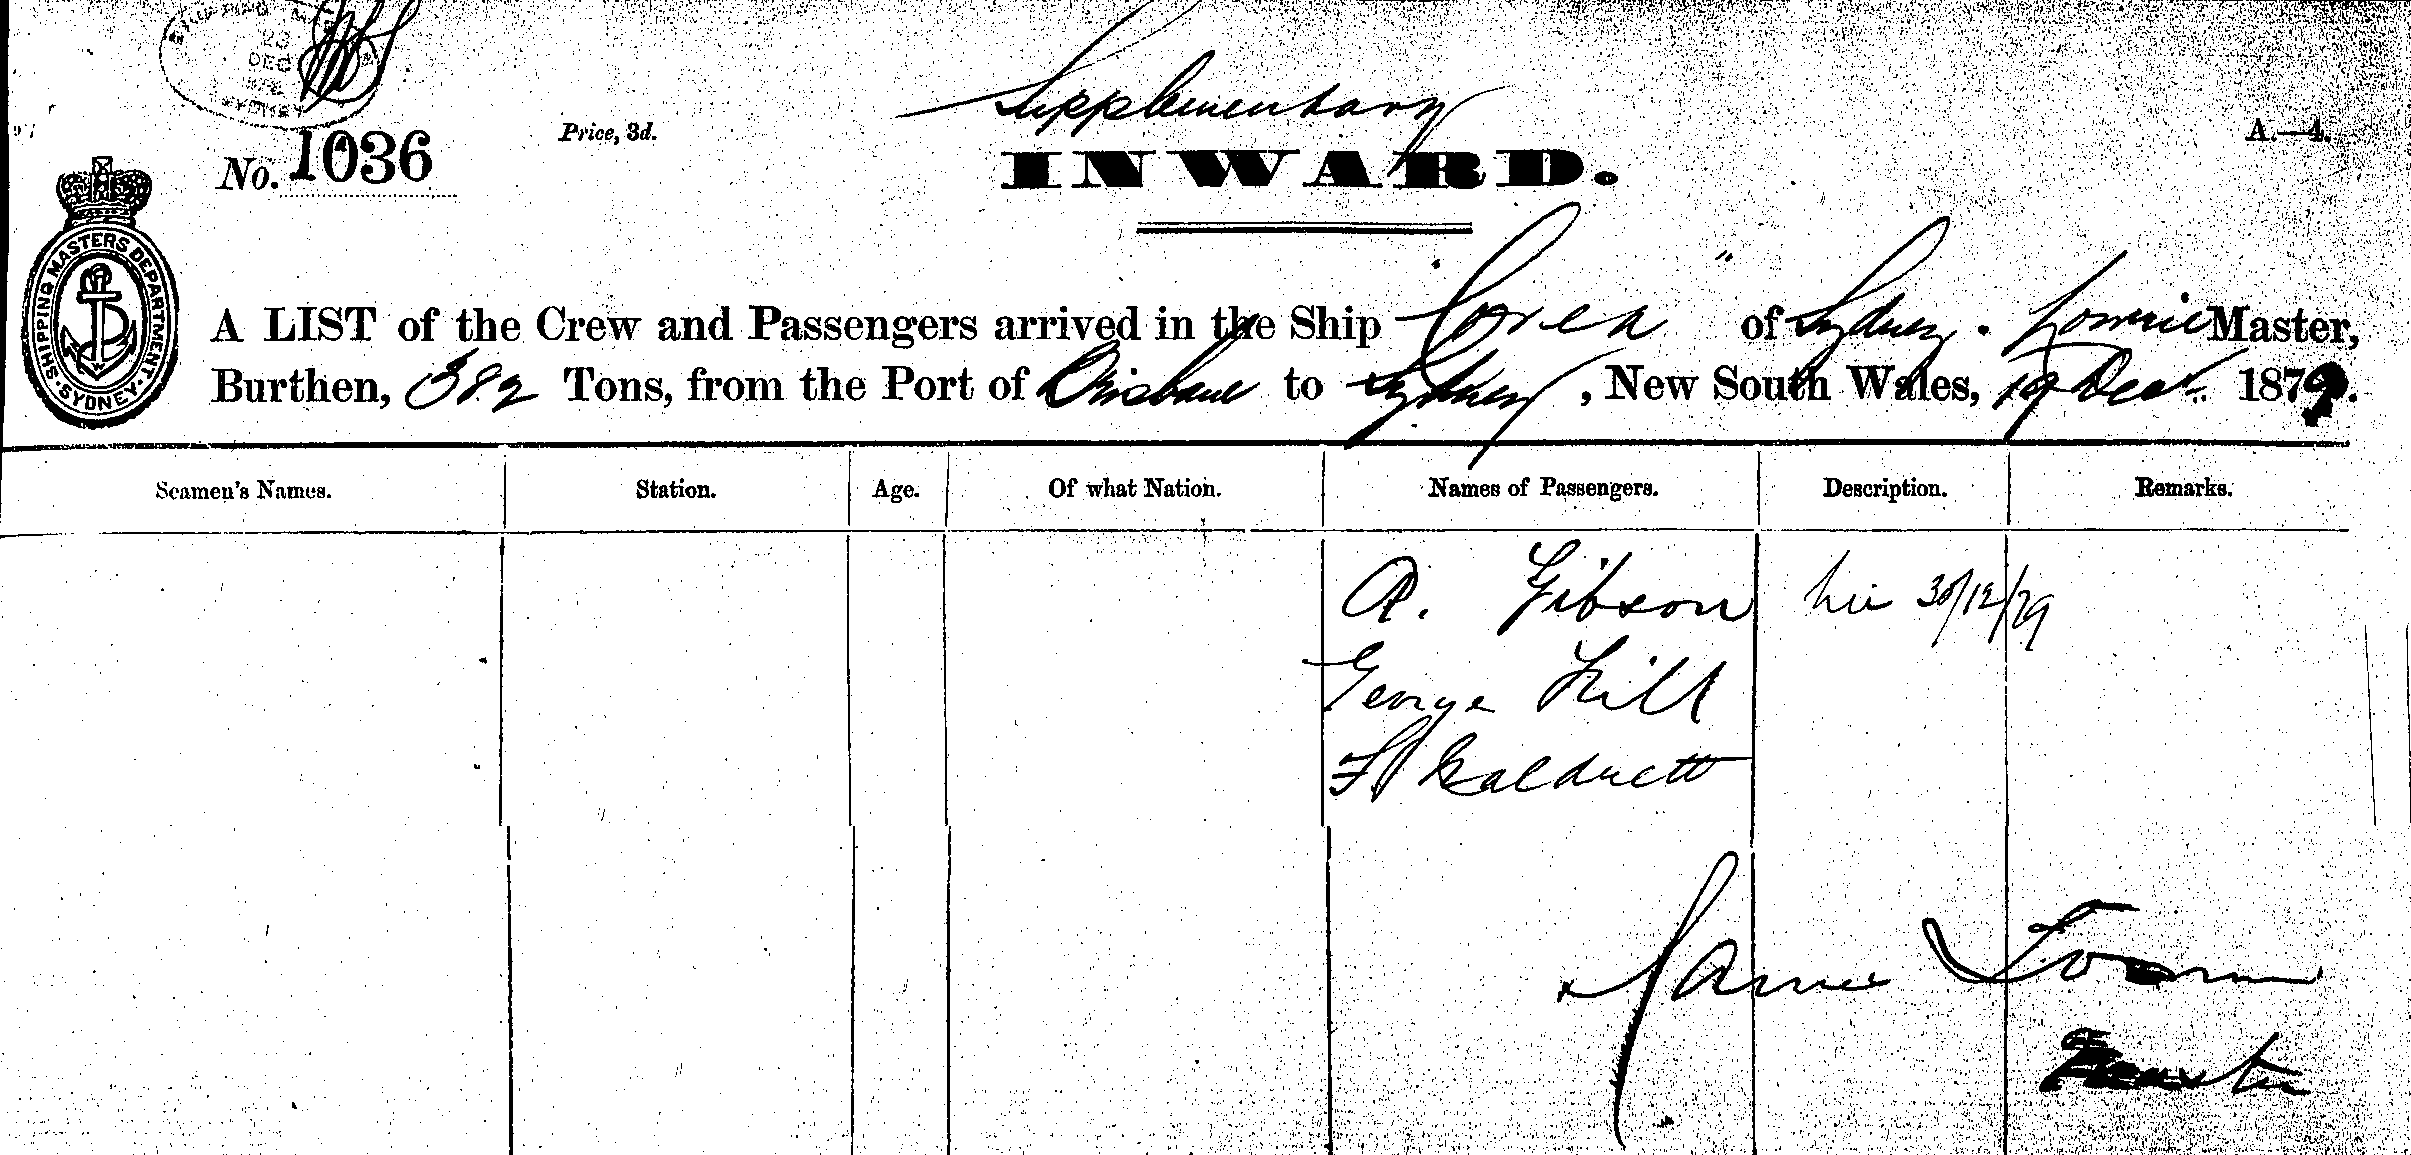 23
DEC
SYDNEY
Supplementary
No. 1036 Price, 3d. A.—4.
INWARD.
SHIPPING MASTERS DEPARTMENT · SYDNEY ·
A LIST of the Crew and Passengers arrived in the Ship "Corea" of Sydney. Master,
Burthen, 382 Tons, from the Port of Brisbane to Sydney, New South Wales, 19 Dec. 1879.
Seamen's Names. Station. Age. Of what Nation. Names of Passengers. Description. Remarks.
Gibson 30/12/79
George Hill
James
Master